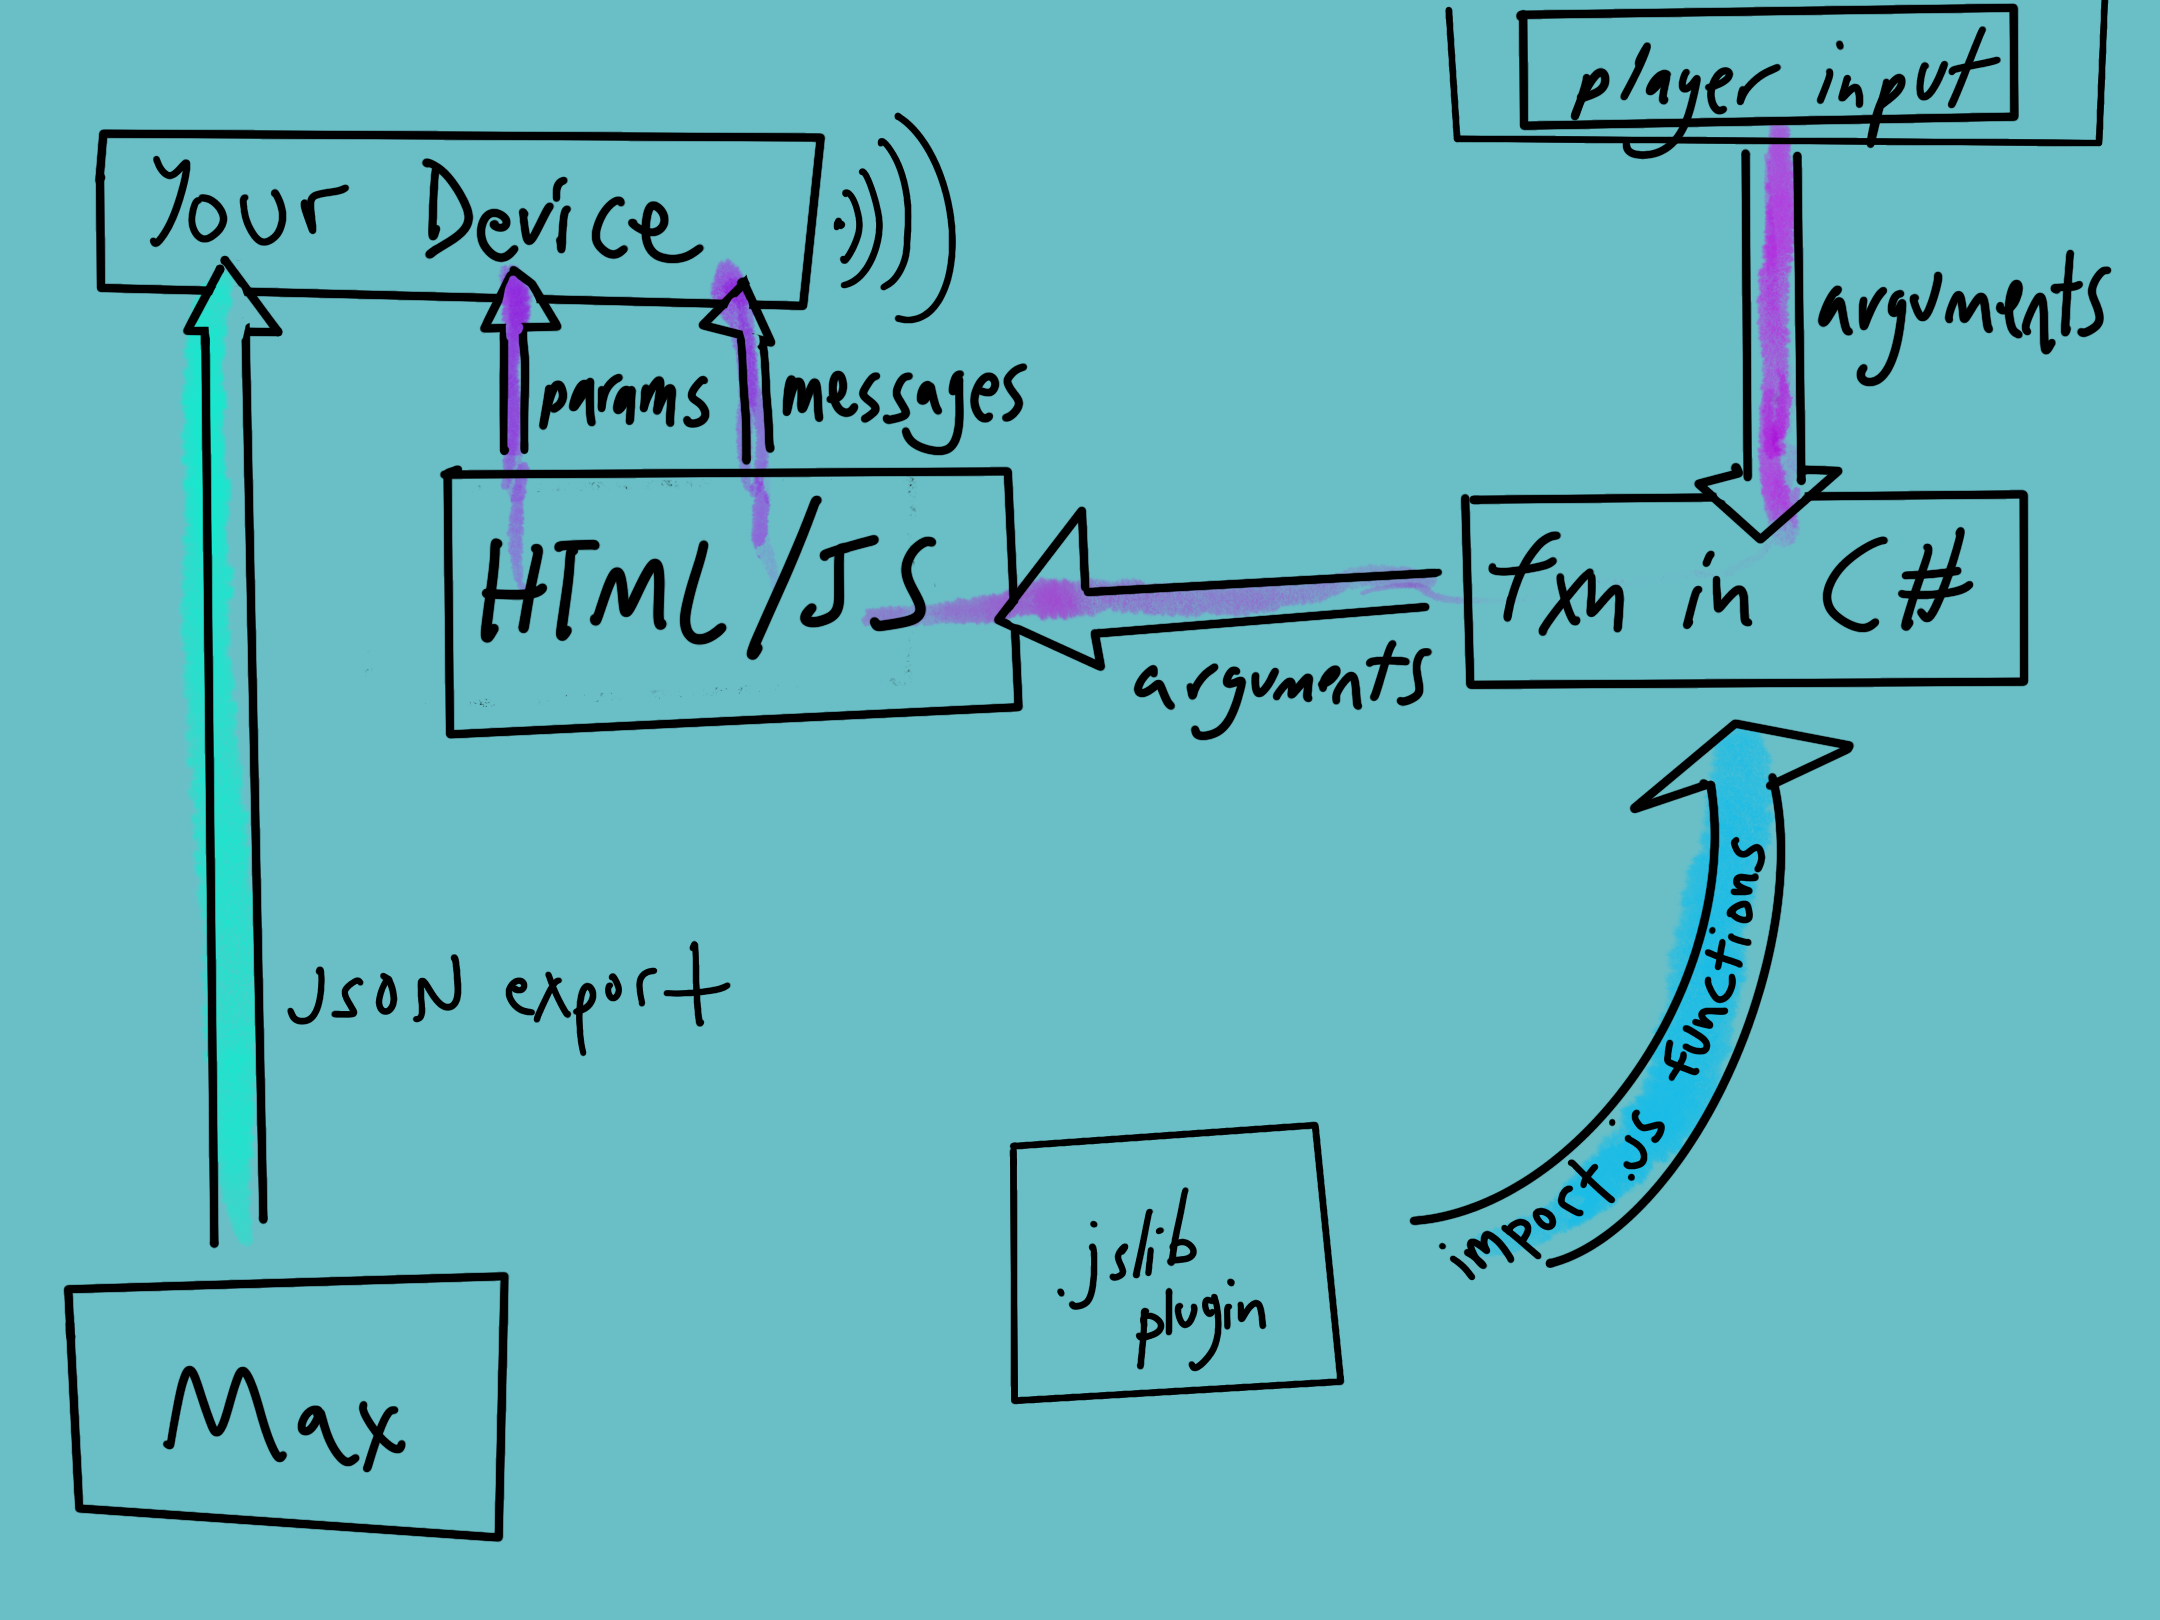 player input
Your Device
arguments
params
messages
HTML/JS
fxn in C#
arguments
import .js functions
JSON export
.jslib
plugin
Max